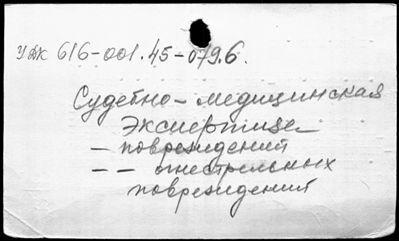 УДК 616-001.45-079.6.
Судебно-медицинская
экспертиза
— повреждений
— — огнестрельных
повреждений